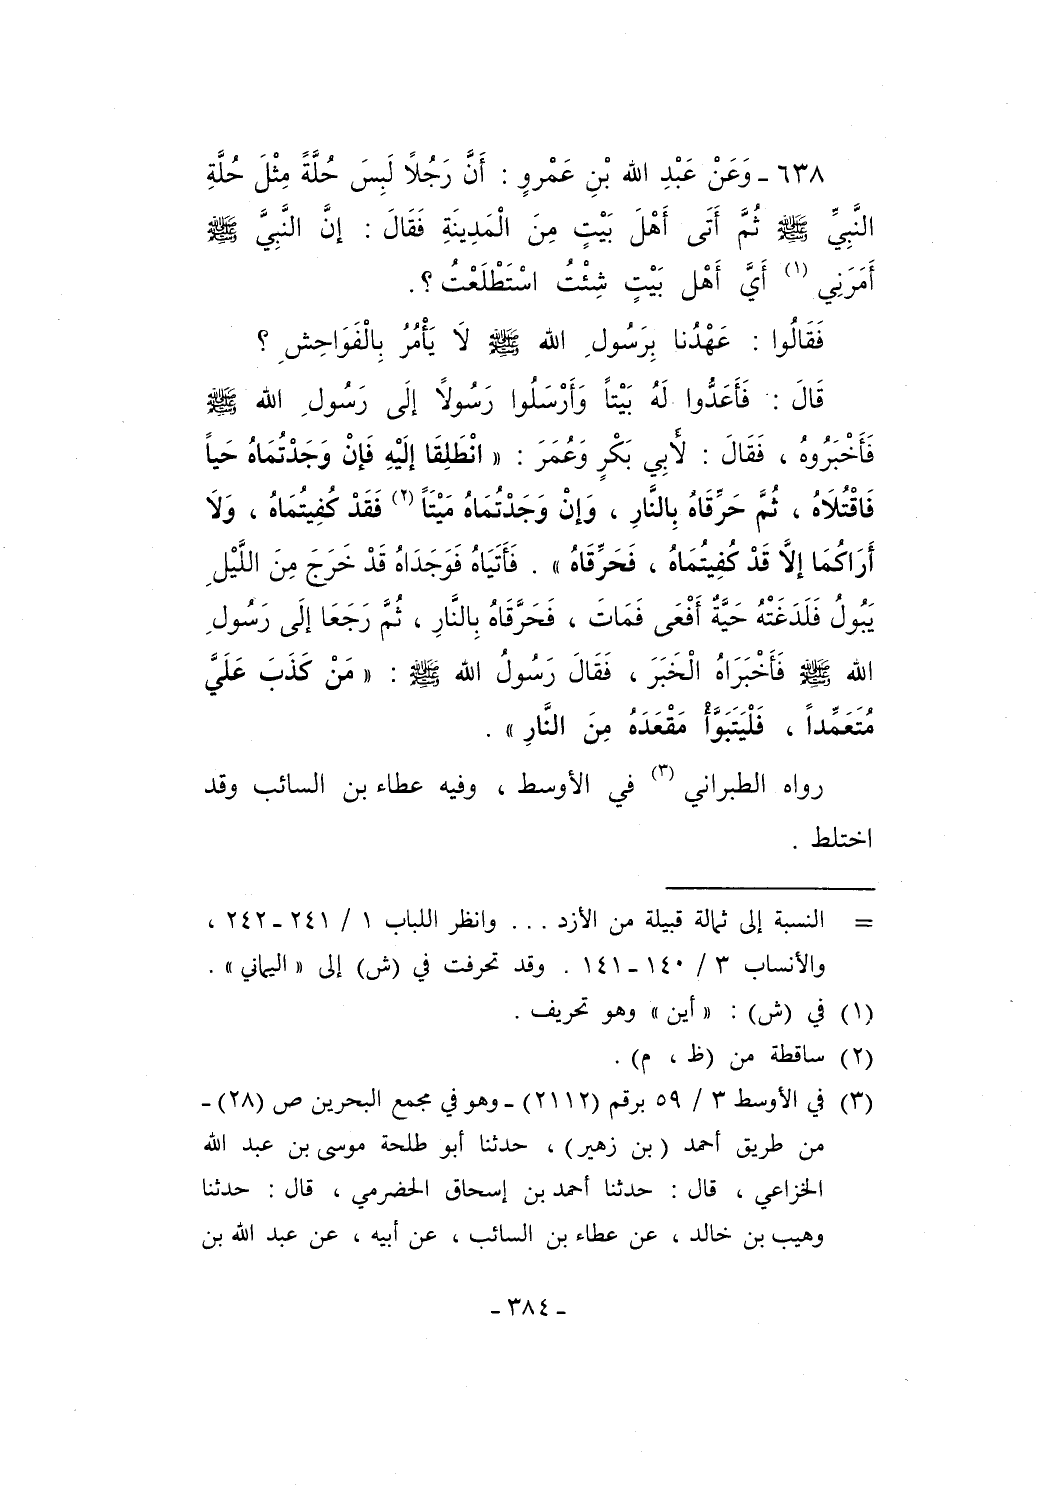 ٦٣٨ ـ وَعَنْ عَبْدِ الله بْنِ عَمْروٍ : أَنَّ رَجُلاً لَبِسَ حُلَّةً مِثْلَ حُلَّةِ
النَّبِيِّ ﷺ ثُمَّ أَتَى أَهْلَ بَيْتٍ مِنَ الْمَدِينَةِ فَقَالَ : إنَّ النَّبِيَّ ﷺ
أَمَرَنِي (١) أَيَّ أَهْل بَيْتٍ شِئْتُ اسْتَطْلَعْتُ ؟.
فَقَالُوا : عَهْدُنا بِرَسُولِ الله ﷺ لَا يَأْمُرُ بِالْفَوَاحِشِ ؟
قَالَ : فَأَعَدُّوا لَهُ بَيْتاً وَأَرْسَلُوا رَسُولاً إلَى رَسُولِ الله ﷺ
فَأَخْبَرُوهُ ، فَقَالَ : لأَبِي بَكْرٍ وَعُمَرَ : « انْطَلِقَا إلَيْهِ فَإنْ وَجَدْتُمَاهُ حَياً
فَاقْتُلَاهُ ، ثُمَّ حَرِّقَاهُ بِالنَّارِ ، وَإنْ وَجَدْتُمَاهُ مَيْتَاً (٢) فَقَدْ كُفِيتُمَاهُ ، وَلَا
أَرَاكُمَا إلاَّ قَدْ كُفِيتُمَاهُ ، فَحَرِّقَاهُ » . فَأَتَيَاهُ فَوَجَدَاهُ قَدْ خَرَجَ مِنَ اللَّيْلِ
يَبُولُ فَلَدَغَتْهُ حَيَّةٌ أَفْعَى فَمَاتَ ، فَحَرَّقَاهُ بِالنَّارِ ، ثُمَّ رَجَعَا إلَى رَسُولِ
الله ﷺ فَأَخْبَرَاهُ الْخَبَرَ ، فَقَالَ رَسُولُ الله ﷺ : « مَنْ كَذَبَ عَلَيَّ
مُتَعَمِّداً ، فَلْيَتَبَوَّأْ مَقْعَدَهُ مِنَ النَّارِ » .
رواه الطبراني (٣) في الأوسط ، وفيه عطاء بن السائب وقد
اختلط .
= النسبة إلى ثمالة قبيلة من الأزد . . . وانظر اللباب ١ / ٢٤١ ـ ٢٤٢ ،
والأنساب ٣ / ١٤٠ ـ ١٤١ . وقد تحرفت في (ش) إلى « اليماني » .
(١) في (ش) : « أين » وهو تحريف .
(٢) ساقطة من (ظ ، م) .
(٣) في الأوسط ٣ / ٥٩ برقم (٢١١٢) ـ وهو في مجمع البحرين ص (٢٨) ـ
من طريق أحمد ( بن زهير) ، حدثنا أبو طلحة موسى بن عبد الله
الخزاعي ، قال : حدثنا أحمد بن إسحاق الحضرمي ، قال : حدثنا
وهيب بن خالد ، عن عطاء بن السائب ، عن أبيه ، عن عبد الله بن
ـ ٣٨٤ ـ